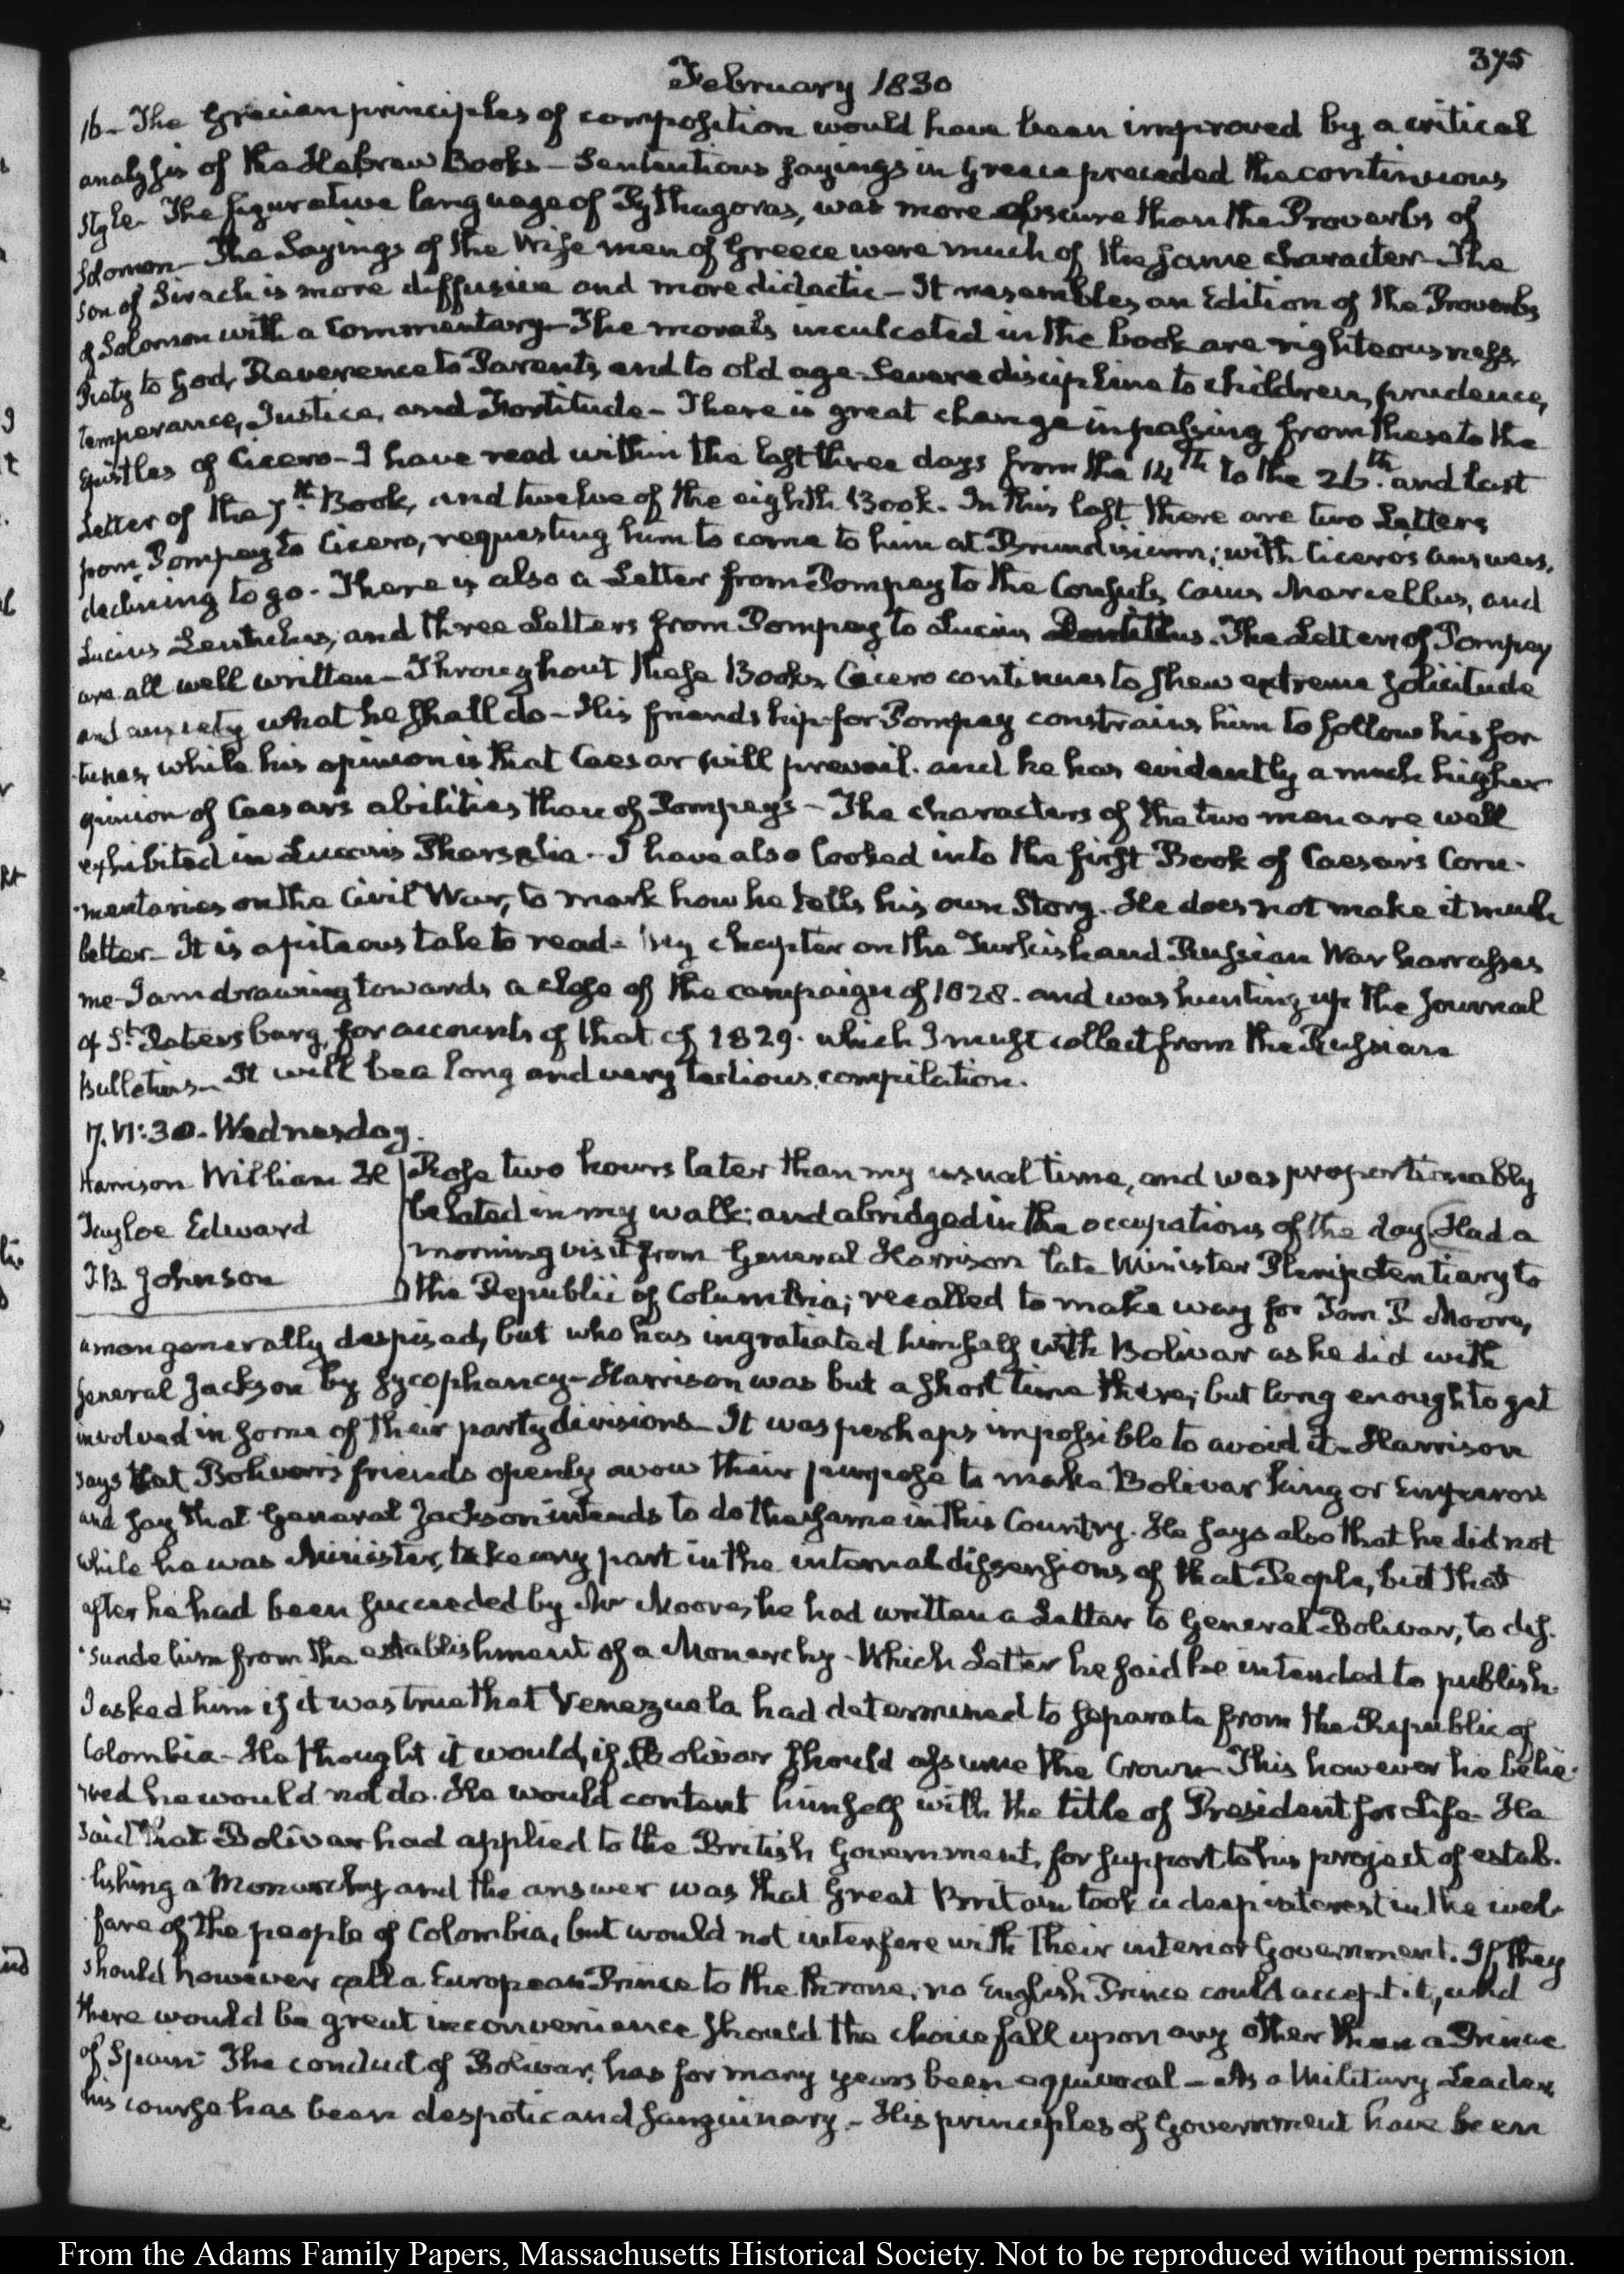 375
February 1830
16 – The Grecian principles of composition would have been improved by a critical
analysis of the Hebrew Books – Sententious sayings in Greece preceded the continuous
style – The figurative language of Pythagoras, was more obscure than the Proverbs of
Solomon – The Sayings of the Wise men of Greece were much of the same character – The
Son of Sirach is more diffusive and more didactic – It resembles an Edition of the Proverbs
of Solomon with a Commentary – The morals inculcated in the book are righteousness,
Piety to God, Reverence to Parents, and to old age – Severe discipline to children, prudence,
temperance, Justice, and Fortitude – There is great change in passing from these to the
Epistles of Cicero – I have read within the last three days from the 14th to the 26th. and last
Letter of the 7th. Book, and twelve of the eighth Book. In this last there are two Letters
from Pompey to Cicero, requesting him to come to him at Brundisium; with Cicero's answers,
declining to go. There is also a Letter from Pompey to the Consuls, Caius Marcellus, and
Lucius Lentulus; and three Letters from Pompey to Lucius Domitius. The Letters of Pompey
are all well written – Throughout these Books, Cicero continues to shew extreme solicitude
and anxiety what he shall do – His friendship for Pompey constrains him to follow his for
-tunes, while his opinion is that Caesar will prevail. and he has evidently a much higher
opinion of Caesars abilities than of Pompey's – The characters of the two men are well
exhibited in Lucan's Pharsalia – I have also looked into the first Book of Caesar's Com-
-mentaries on the Civil War, to mark how he tells his own Story. He does not make it much
better – It is a piteous tale to read – My chapter on the Turkish and Russian War harrasses
me – I am drawing towards a close of the campaign of 1828. and was hunting up the Journal
of St. Petersburg, for accounts of that of 1829. which I must collect from the Russian
Bulletins – It will be a long and very tedious compilation.
17. VI:30. Wednesday.
Harrison William H
Tayloe Edward
J B Johnson
Rose two hours later than my usual time, and was proportionably
belated in my walk; and abridged in the occupations of the day. Had a
morning visit from General Harrison late Minister Plenipotentiary to
the Republic of Columbia; recalled to make way for Tom P. Moore,
a man generally despised, but who has ingratiated himself with Bolivar as he did with
General Jackson by sycophancy – Harrison was but a short time there; but long enough to get
involved in some of their party divisions – It was perhaps impossible to avoid it – Harrison
says that Bolivar's friends openly avow their purpose to make Bolivar King or Emperor
and say that General Jackson intends to do the same in this Country. He says also that he did not
while he was Minister, take any part in the internal dissensions of that People, but that
after he had been succeeded by Mr Moore, he had written a Letter to General Bolivar, to dis-
-suade him from the establishment of a Monarchy – Which Letter he said he intended to publish.
I asked him if it was true that Venezuela had determined to separate from the Republic of
Colombia – He thought it would, if Bolivar should assume the Crown – This however he belie-
-ved he would not do. He would content himself with the title of President for Life – He
said that Bolivar had applied to the British Government, for support to his project of estab-
-lishing a Monarchy and the answer was that Great Britain took a deep interest in the wel-
-fare of the people of Colombia, but would not interfere with their interior Government. If they
should however call a European Prince to the throne, no English Prince could accept it, and
there would be great inconvenience should the choice fall upon any other than a Prince
of Spain – The conduct of Bolivar, has for many years been equivocal – As a Military Leader,
his course has been despotic and sanguinary – His principles of Government have been
From the Adams Family Papers, Massachusetts Historical Society. Not to be reproduced without permission.